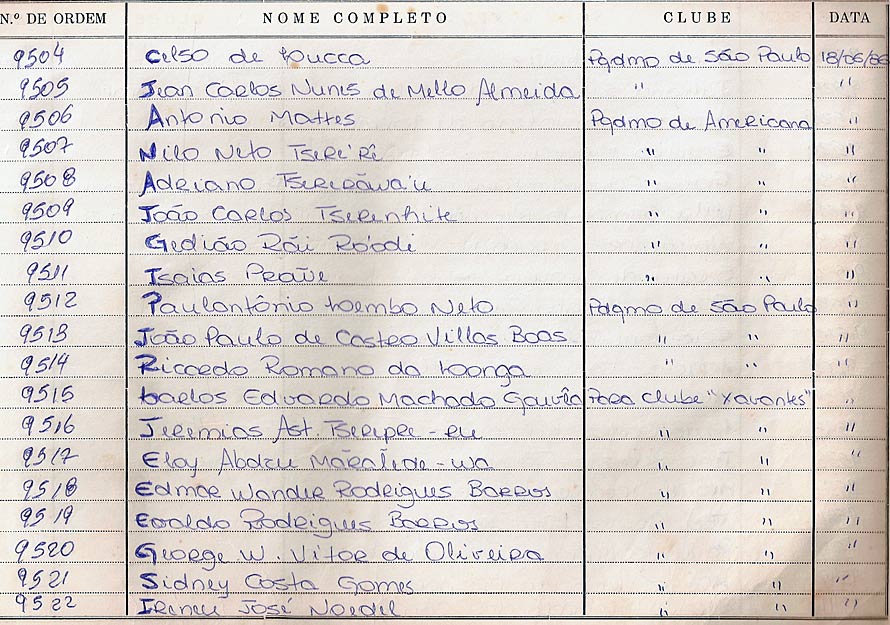 N.º DE ORDEM NOME COMPLETO CLUBE DATA
9504 Celso de Lucca Pqdmo de São Paulo 18/06/86
9505 Jean Carlos Nunes de Mello Almeida " "
9506 Antonio Mattes Pqdmo de Americana "
9507 Nilo Neto Tsere'rê " " "
9508 Adriano " " "
9509 João Carlos " " "
9510 Gedião " " "
9511 Isaias " " "
9512 Paulantônio Neto Pdqmo de São Paulo "
9513 João Paulo de Castro Villas Boas " " "
9514 Riccardo Romano da " " "
9515 Carlos Eduardo Machado Gouvêa Para Clube "Xavantes" "
9516 Jeremias Ast. " " "
9517 Eloy " " "
9518 Edmar Wander Rodrigues Barros " " "
9519 Eraldo Rodrigues Barros " " "
9520 George W. Vitor de Oliveira " " "
9521 Sidney Costa Gomes " " "
9522 Irineu José " " "